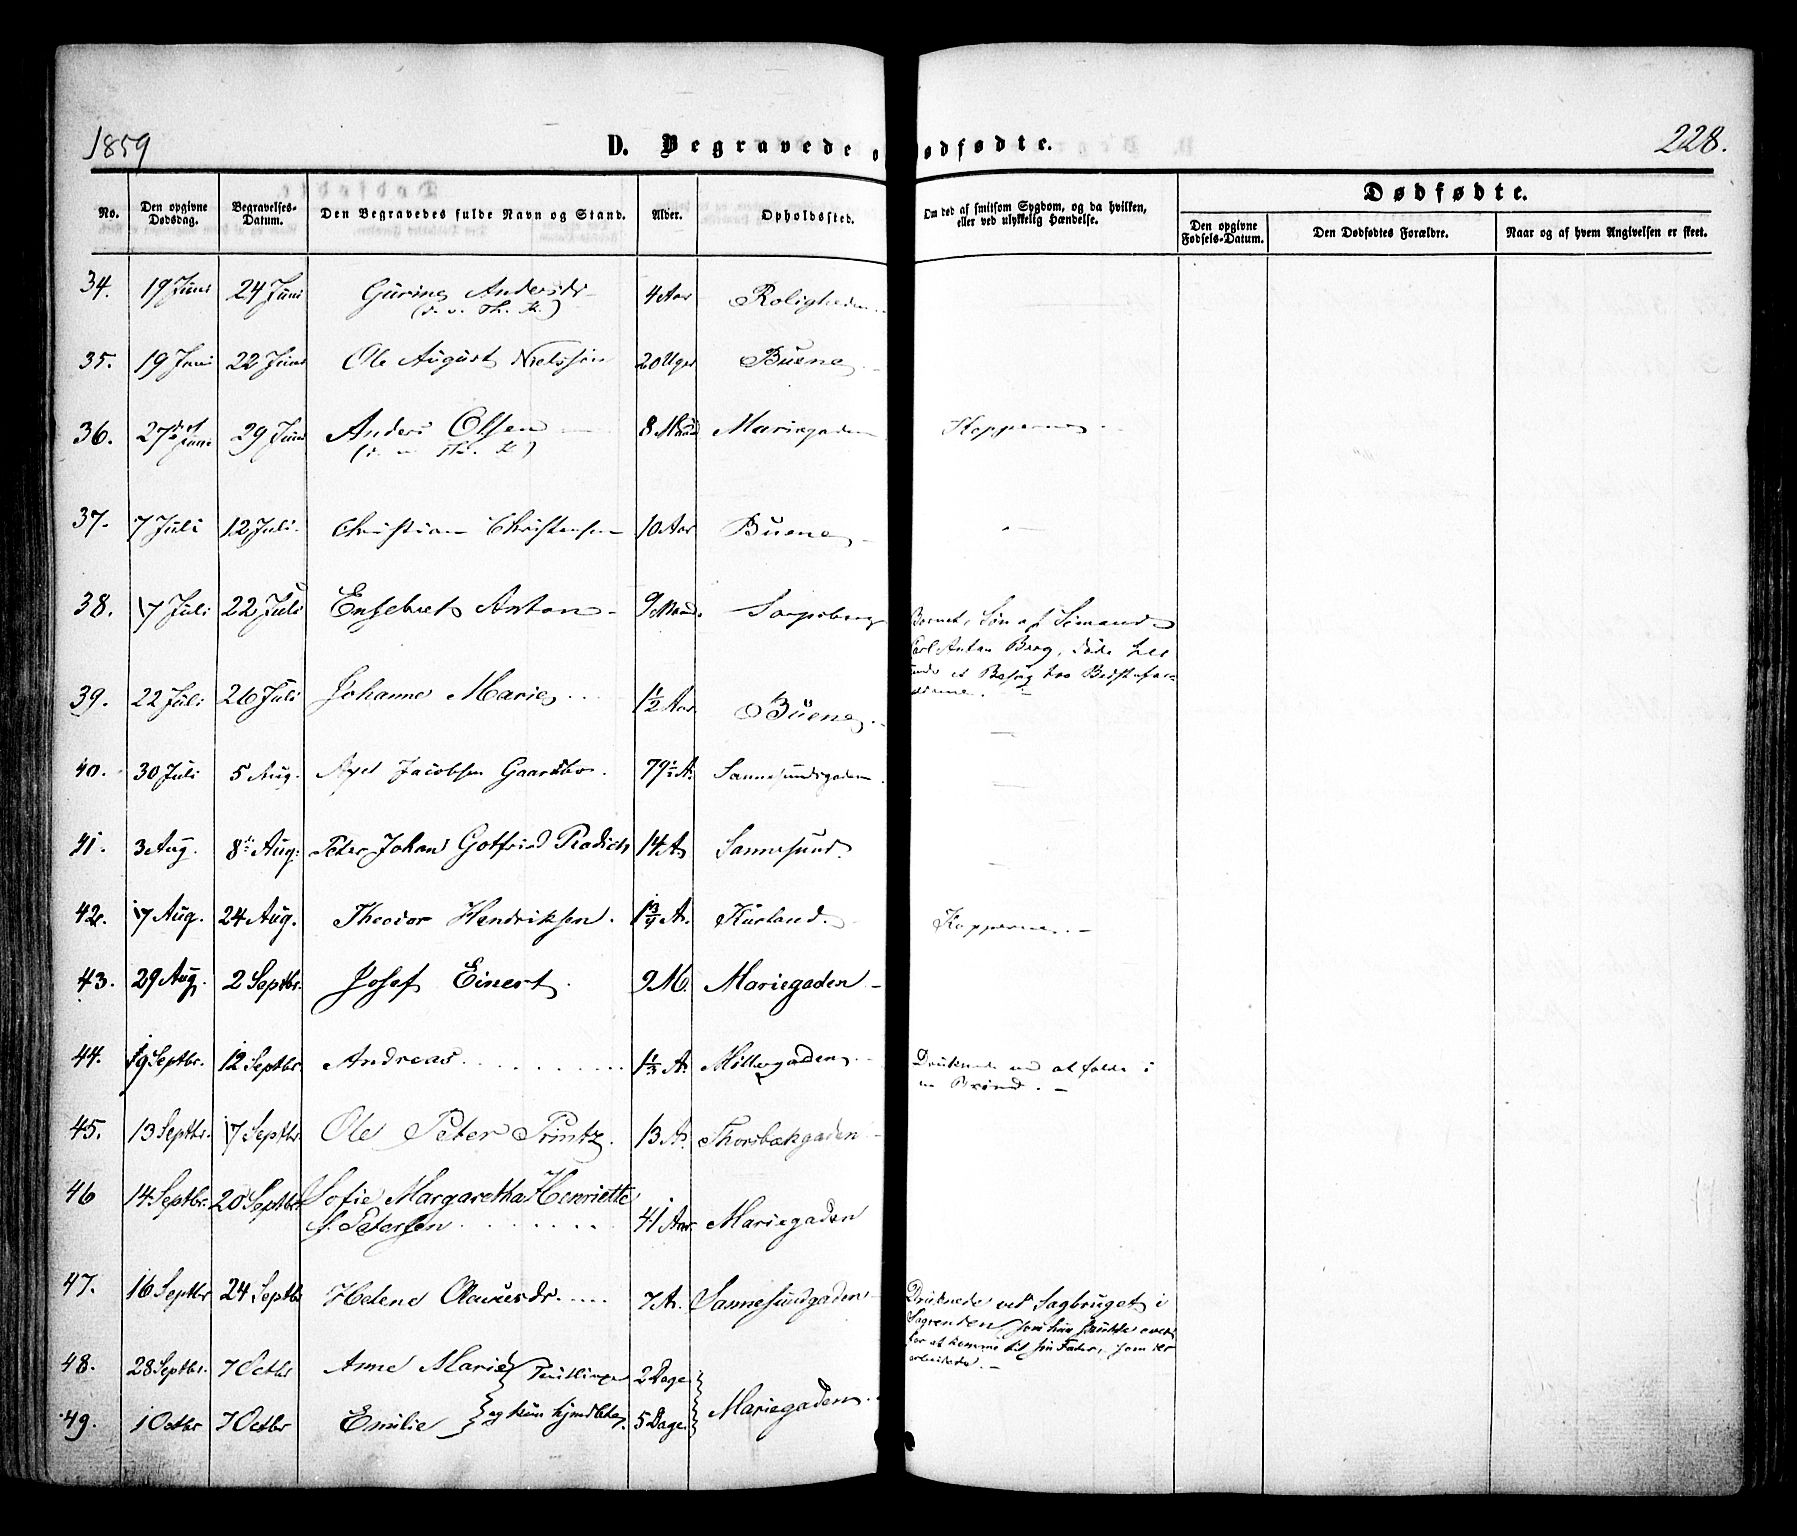 1859
D. Begravede o
ødfødte.
228.
No.
Den opgivne Dødsdag.
Begravelses-Datum.
Den Begravedes fulde Navn og Stand.
Alder.
Opholdssted.
Om død af smitsom Sygdom, og da hvilken, eller ved ulykkelig Hændelse.
Dødfødte.
Den opgivne Fødsels-Datum.
Den Dødfødtes Forældre.
Naar og af hvem Angivelsen er skeet.
34. 19 Juni 24 Juni Gurine Andersdr 4 Aar Roligheden
35. 19 Juni 22 Juni Ole August Nielssøn 20 Uger Buene
36. 27 Juni 29 Juni Anders Olsen 8 Maand Mariegaden Kopperne
37. 7 Juli 12 Juli. Christian Christensen 10 Aar Buene
38. 17 Juli 22 Juli Engebret Anton 9 Maand. Sarpsborg Barnet, Søn af Sømand
Carl Anton Berg, døde her
under et Besøg hos Bedstefor-
ældrene.
39. 22 Juli 26 Juli Johanne Marie 1½ Aar Buene
40. 30 Juli 5 Aug. Axel Jacobsen Gaardbo. 79½ A. Sannesundsgaden
41. 3 Aug. 8 Aug: Peter Johan Gotfried Radich 14 A Sannesund.
42. 17 Aug. 24 Aug. Theodor Hendriksen. 1¾ A. Kurland. Kopperne.
43. 29 Aug. 2 Septbr. Josef Einert. 9 M. Mariegaden
44. 9 Septbr. 12 Septbr Andreas. A. Møllergaden Druknede ved at falde i
en Brønd.
45. 13 Septbr. 17 Septbr. Ole Peter Printz. 13 A. Thorsbækgaden
46 14 Septbr. 20 Septbr. Sofie Margaretha Henriette
f. Petersen 41 Aar Mariegaden
47. 16 Septbr 24 Septbr Helene Olausdr. 7 A. Sannesundgaden Druknede ved Sagbruget i
Sagrenden, som hun skulde over
for at komme til sin Fader, som der
arbeidede.
48. 28 Septbr. 7 Octbr Anne Marie Tvillinger 2 Dage Mariegaden
49. 1 Octbr 7 Octbr Emilie og kun hjemdøbte. 5 Dage